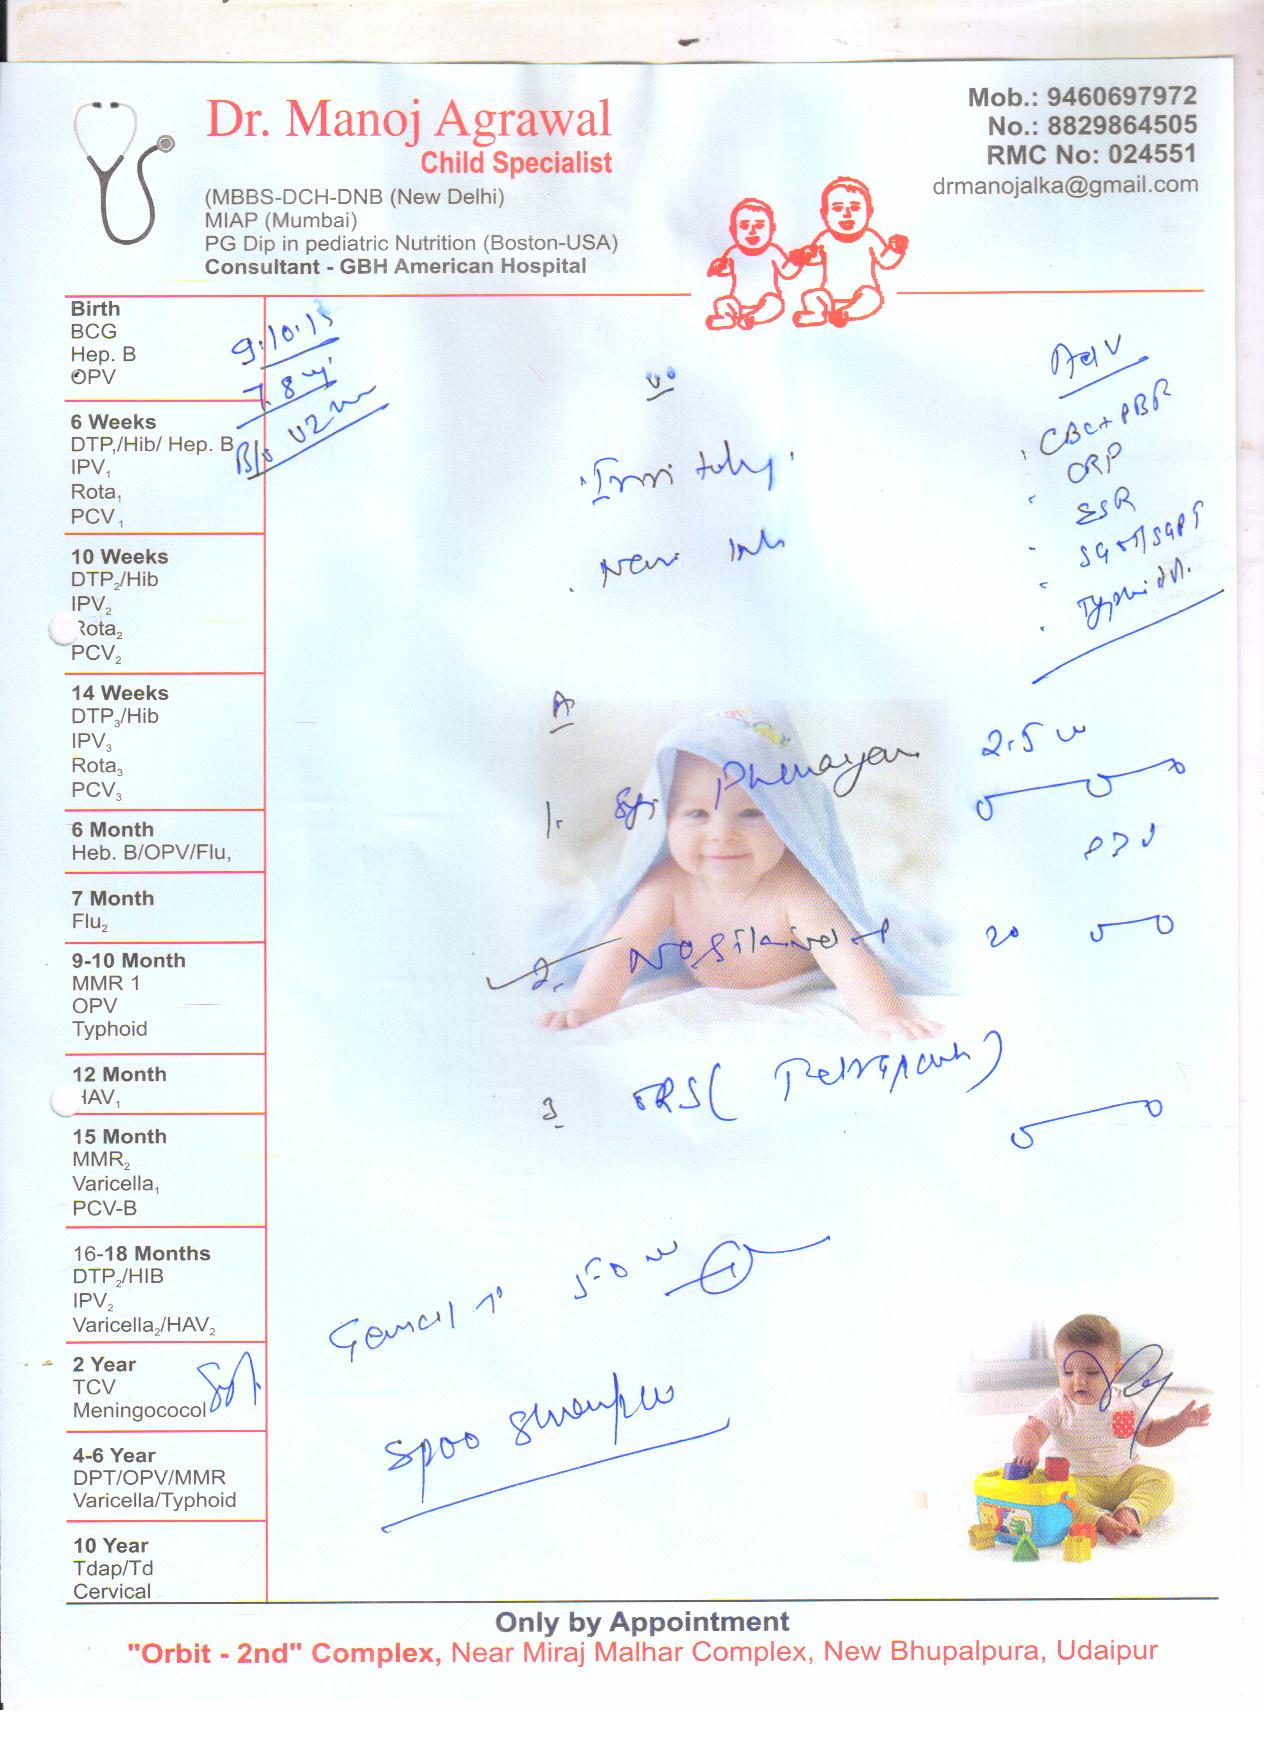 Dr. Manoj Agrawal
Child Specialist
(MBBS-DCH-DNB (New Delhi)
MIAP (Mumbai)
PG Dip in pediatric Nutrition (Boston-USA)
Consultant - GBH American Hospital
Mob.: 9460697972
No.: 8829864505
RMC No: 024551
drmanojalka@gmail.com
Birth
BCG
Hep. B
OPV
6 Weeks
DTP,/Hib/ Hep. B
IPV₁
Rota₁
PCV₁
10 Weeks
DTP₂/Hib
IPV₂
Rota₂
PCV₂
14 Weeks
DTP₃/Hib
IPV₃
Rota₃
PCV₃
6 Month
Heb. B/OPV/Flu,
7 Month
Flu₂
9-10 Month
MMR 1
OPV
Typhoid
12 Month
HAV₁
15 Month
MMR₂
Varicella₁
PCV-B
16-18 Months
DTP₂/HIB
IPV₂
Varicella₂/HAV₂
2 Year
TCV
Meningococol
4-6 Year
DPT/OPV/MMR
Varicella/Typhoid
10 Year
Tdap/Td
Cervical
Adv
CBC+PBR
CRP
ESR
SGOT/SGPT
1. Syr Phenargan 2.5
2. 20
3 ORS (Tetrapack)
Only by Appointment
"Orbit - 2nd" Complex, Near Miraj Malhar Complex, New Bhupalpura, Udaipur